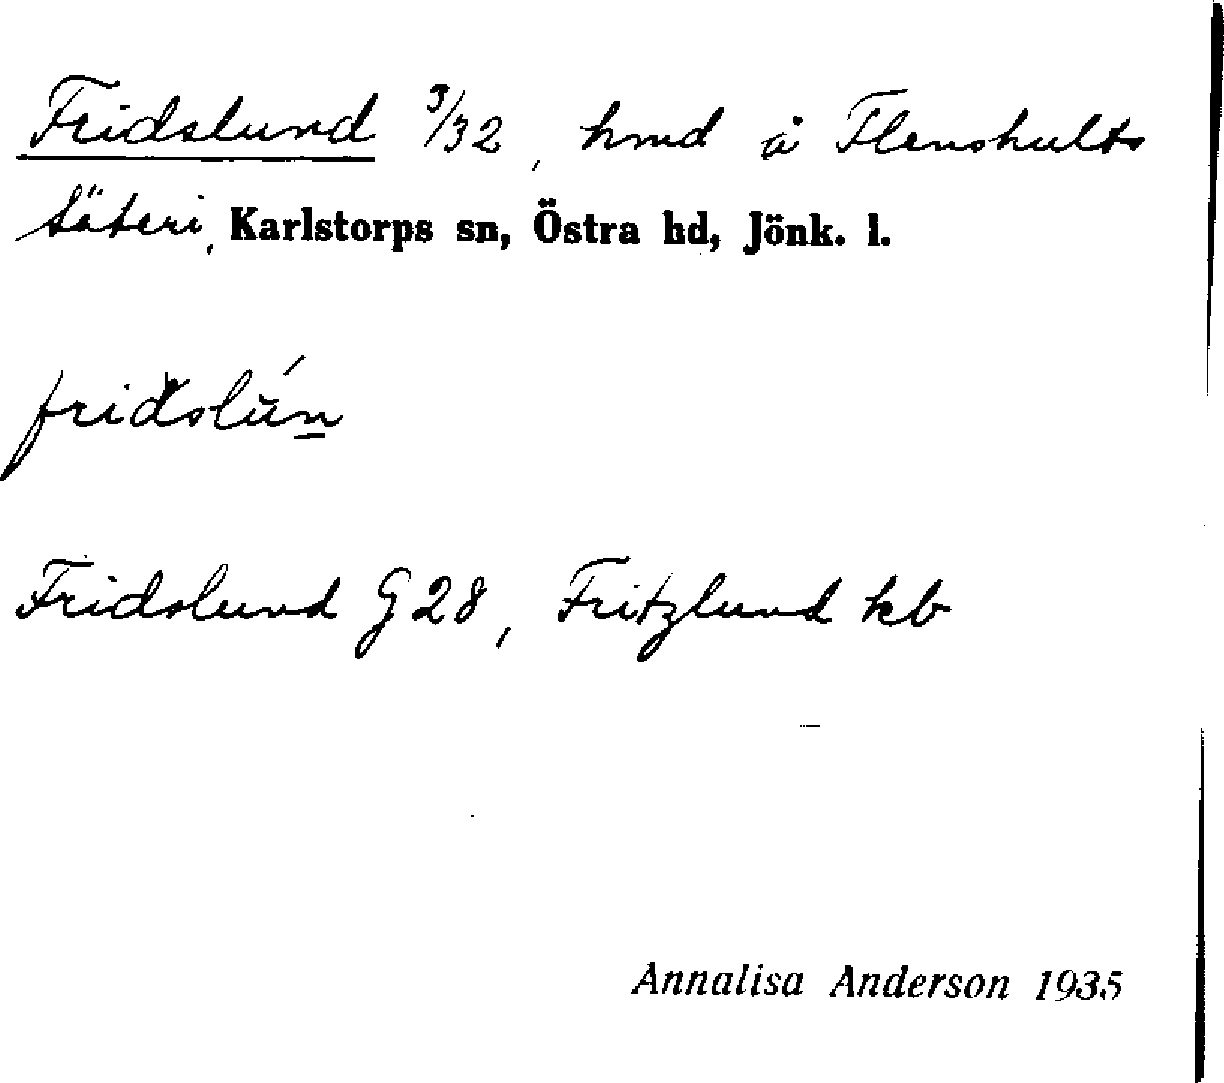 Fridslund 3/32, hmd å Flenshults
säteri, Karlstorps sn, Östra hd, Jönk. l.
Fridslund G 28, Fritzlund kb
Annalisa Anderson 1935